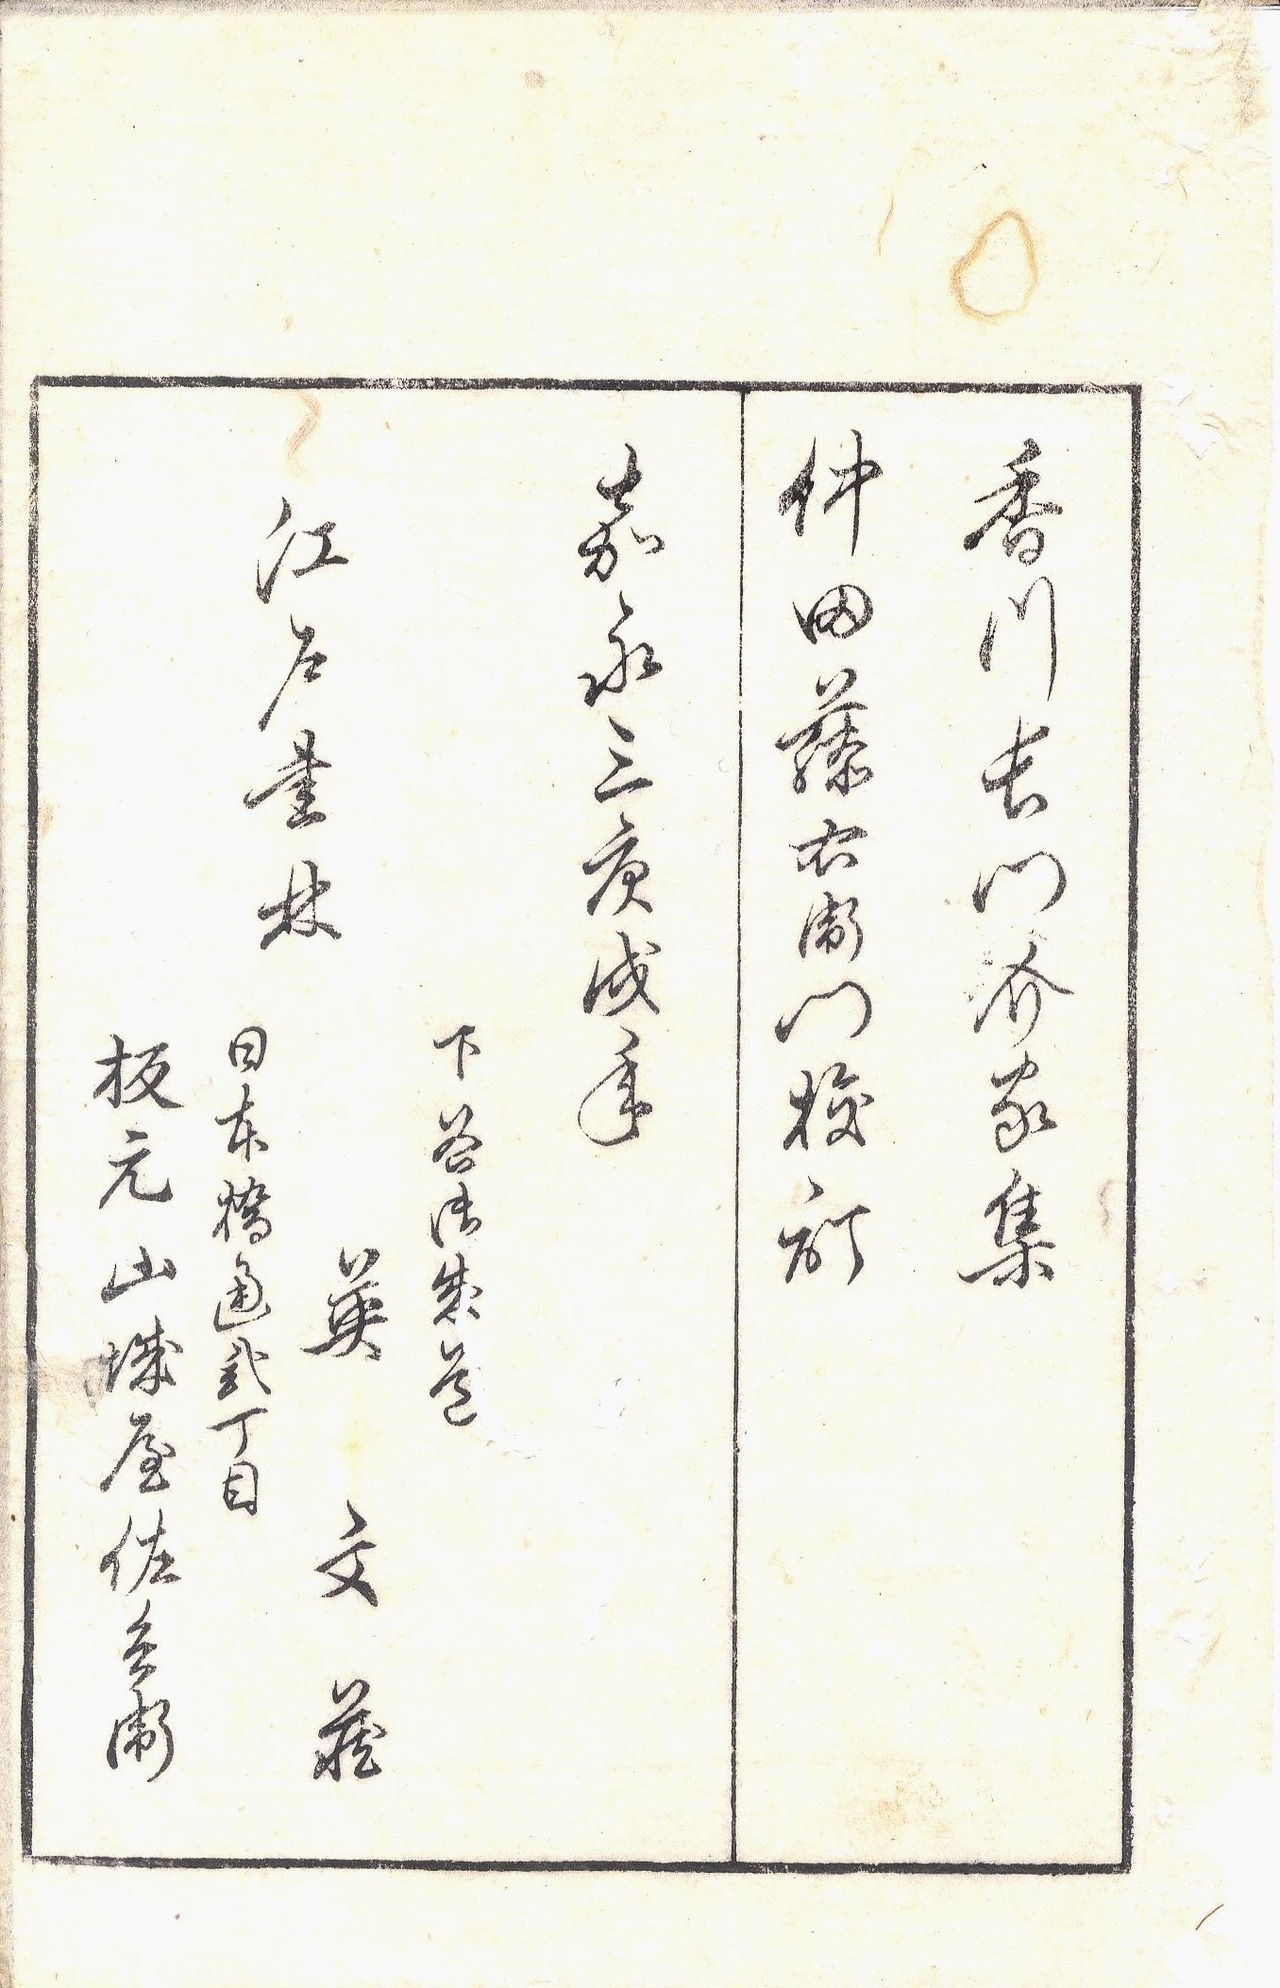 香川長門介家集
仲田藤右衛門校訂
嘉永三庚戌年
江戸書林
下谷御成道
英文蔵
日本橋通弐丁目
板元山城屋佐兵衛